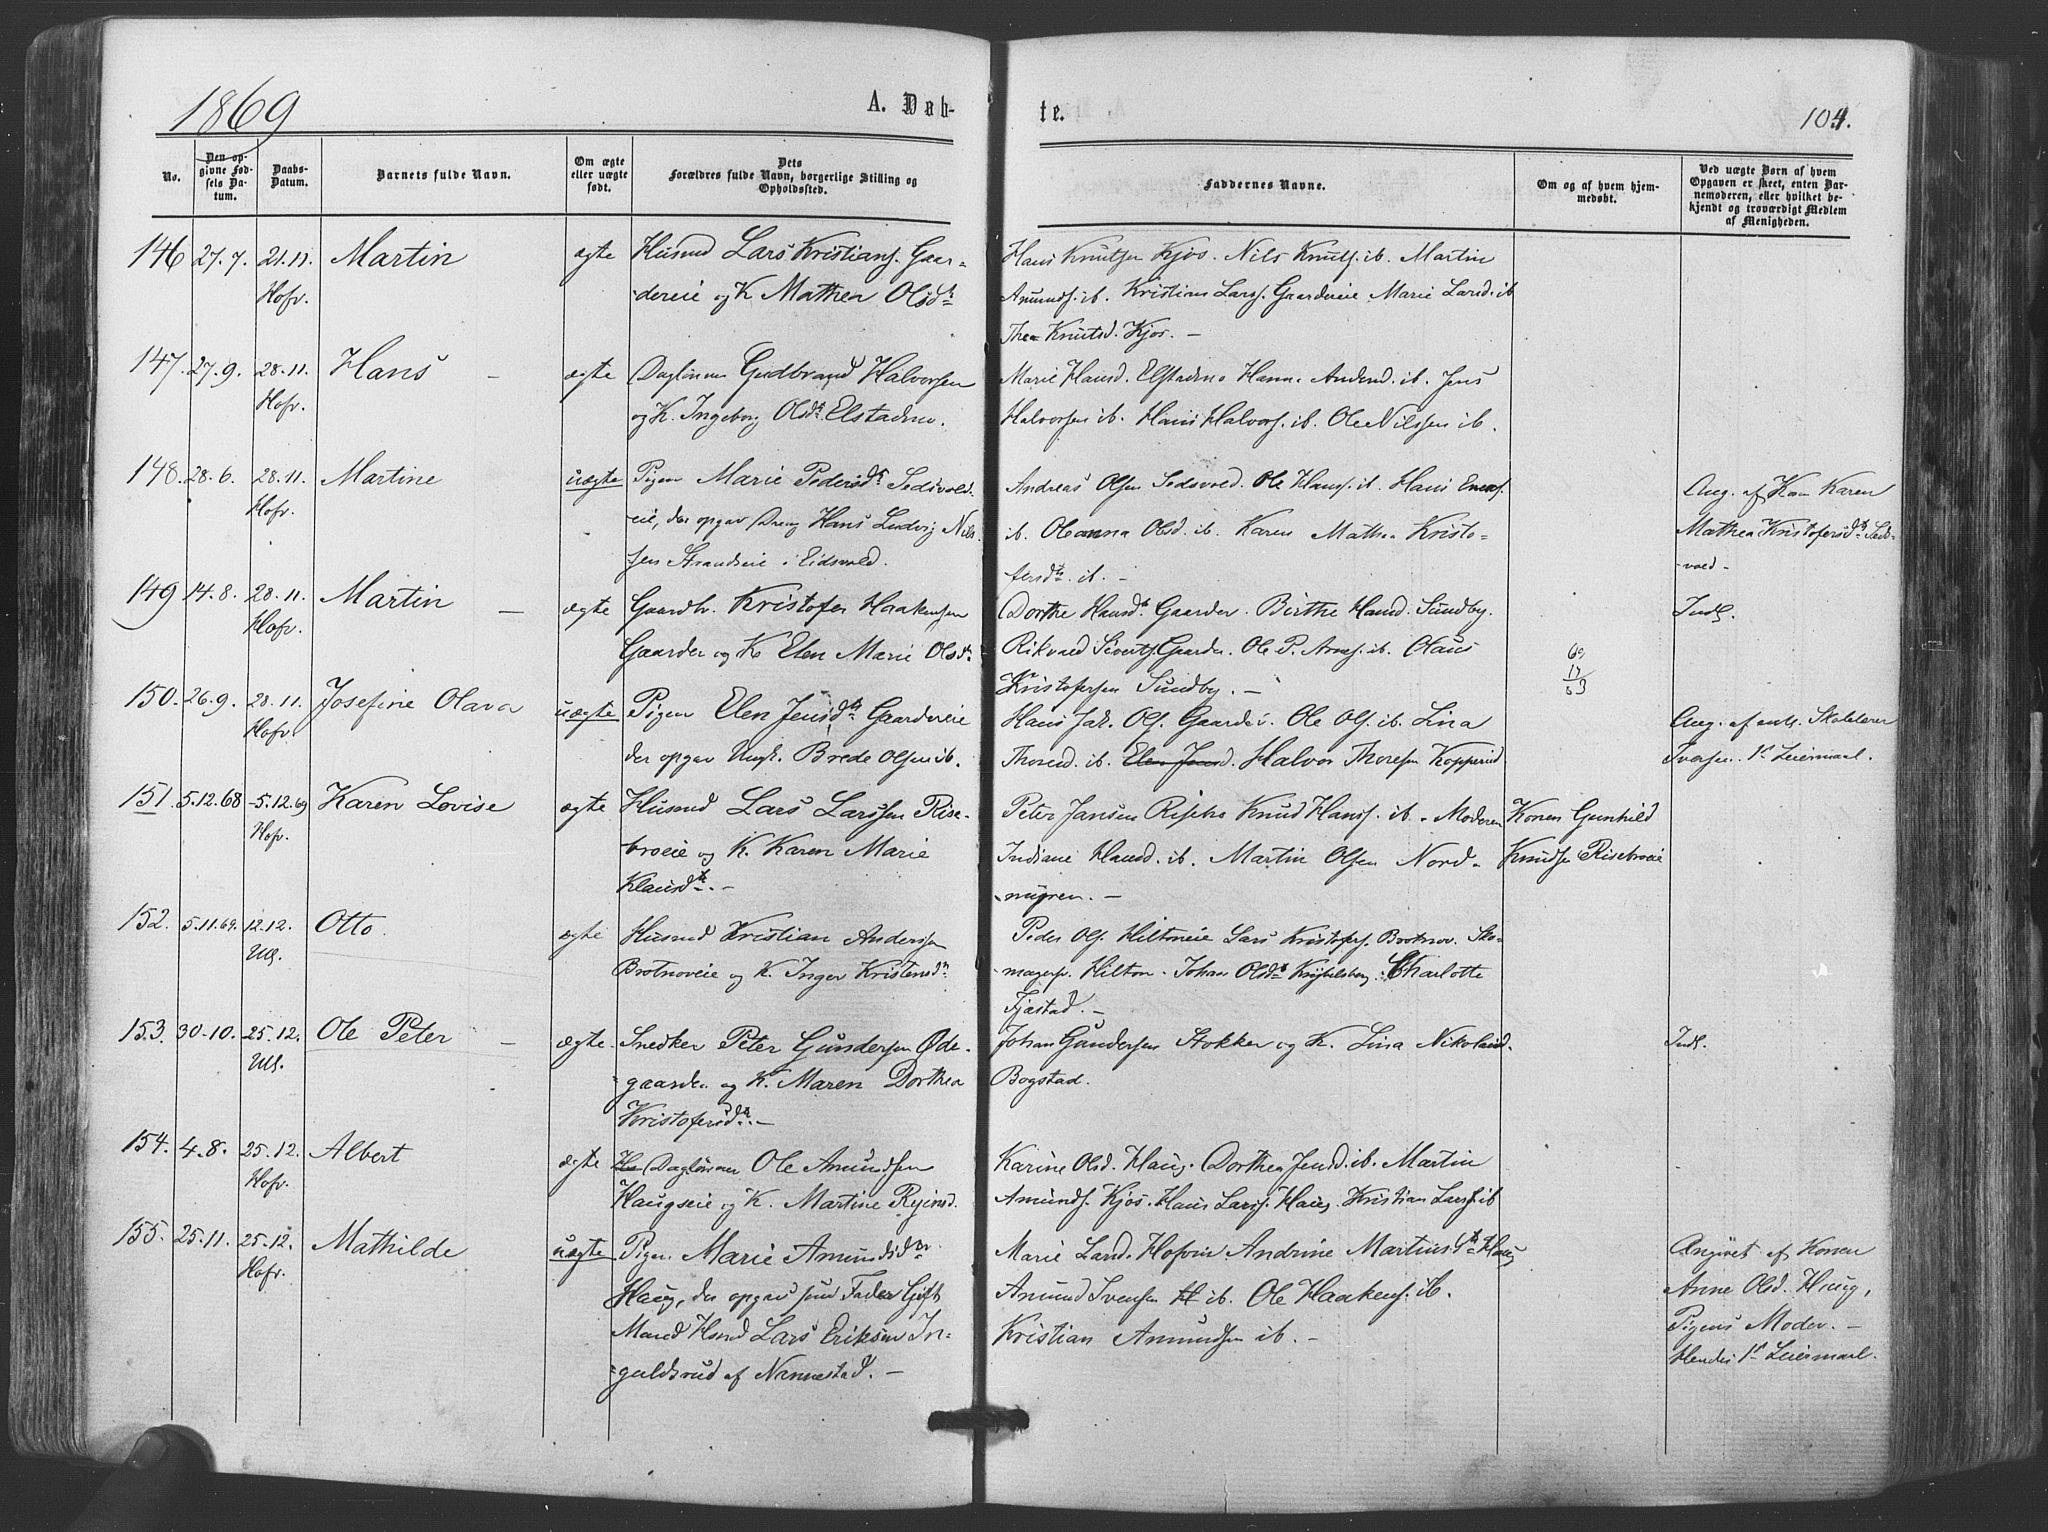 1869
A. Døb-
te.
104.
No.
Den op-
givne Fød-
sels Da-
tum.
Daabs-
Datum.
Barnets fulde Navn.
Om ægte
eller uægte
født.
Dets
Forældres fulde Navn, borgerlige Stilling og
Opholdssted.
Faddernes Navne.
Om og af hvem hjem-
medøbt.
Ved uægte Børn af hvem
Opgaven er skeet, enten Bar-
nemoderen, eller hvilket be-
kjendt og troværdigt Medlem
af Menigheden.
146 27.7. 21.11. Martin ægte Husmd Lars Kristians. Gaar-
Hofv. -dereie og K. Mathea Olsdtr
Hans Knutsen Kjos. Nils Knuts. ib. Martin
Amunds. ib. Kristian Larss. Gaardereie Marie Larsd. ib
Thea Knutsd. Kjos. —
147. 27.9. 28.11. Hans – ægte Daglønner Gudbrand Halvorsen
Hofv. og K. Ingeborg Olsdtr Elstadmo.
Marie Hansd. Elstadmo Hanna Andersd. ib. Jens
Halvorsen ib. Hans Halvors. ib. Ole Nilssen ib.
148. 28.6. 28.11. Martine uægte Pigen Marie Pedersdtr Sedsvold-
Hofv. eie, der opgav Dreng Hans Ludvig Nils-
sen Strandseie i Eidsvold.
Andreas Olsen Sedsvold. Ole Hans. ib. Hans
ib. Oleanna Olsd. ib. Karen Mathea Kristo-
fersdtr. ib. –
Ang. af Kon Karen
Mathea Kristofersdtr Seds-
vold –
149 14.8. 28.11. Martin — ægte Gaardbr. Kristofer Haakensen
Hofv. Gaarder og K Elen Marie Olsdtr
Dorthe Hansdtr Gaarder. Birthe Hansd. Sundby.
Rikvald Siverts. Gaarder. Ole P. Arnes. ib. Olaus
Kristofersen Sundby. —
69
17
53
Indf.
150. 26.9. 28.11. Josefine Olava uægte Pigen Elen Jensdtr Gaardereie
Hofv. der opgav Ungk. Brede Olsen ib.
Hans Jak. Ols. Gaarder. Ole Ols. ib. Lina
Thorsd. ib. Elen Jensd. Halvor Thoresen Kopperud
Ang. af enl. Skolelærer
Iversen. 1st Leiermaal.
151. 5.12.68 5.12.69 Karen Lovise ægte Husmd Lars Larssen Rise-
Hofv. broeie og K. Karen Marie
Klausdtr. –
Peter Jansen Knud Hans. ib. Moderen
Indiane Hansd. ib. Martin Olsen Nord-
myren. –
Konen Gunhild
Knuds Risebroeie
152. 5.11.69. 12.12. Otto. ægte Husmd Kristian Anderssen
Ull. Brotnoveie og K. Inger Kristensdtr
Peder Ols. Hiltoneie Lars Kristofers. Brotnov. Sko-
magers. Hilton. Johan Olsdtr Charlotte
Fjæstad. –
153. 30.10. 25.12. Ole Peter — ægte. Snedker Peter Gundersen Øde-
Ull. gaarden og K. Maren Dorthea
Kristofersdtr. –
Johan Gundersen Stokker og K. Lina Nikolaisd.
Bogstad.
Indf.
154. 4.8. 25.12. Albert ægte Hu Daglønner Ole Amundsen
Hofv. Haugseie og K. Martine Reiersd.
Karine Olsd. Haug. Dorthea Jensd. ib. Martin
Amunds. Kjos. Hans Larss. Haug. Kristian Larss. ib
155. 25.11. 25.12. Mathilde uægte Pigen Marie Amundsdtr.
Hofv. Haug, der opgav som Fader Gift
Mand Hsmd Lars Eriksen In-
galdsrud af Nannestad. —
Marie Larsd. Hofvin Andrine Martinsdtr Haug
Amund Svensen H ib. Ole Haakens. ib.
Kristian Amundsen ib. –
Angivet af Konen
Anne Olsd. Haug,
Pigens Moder. –
Hendes 1st Leiermaal.